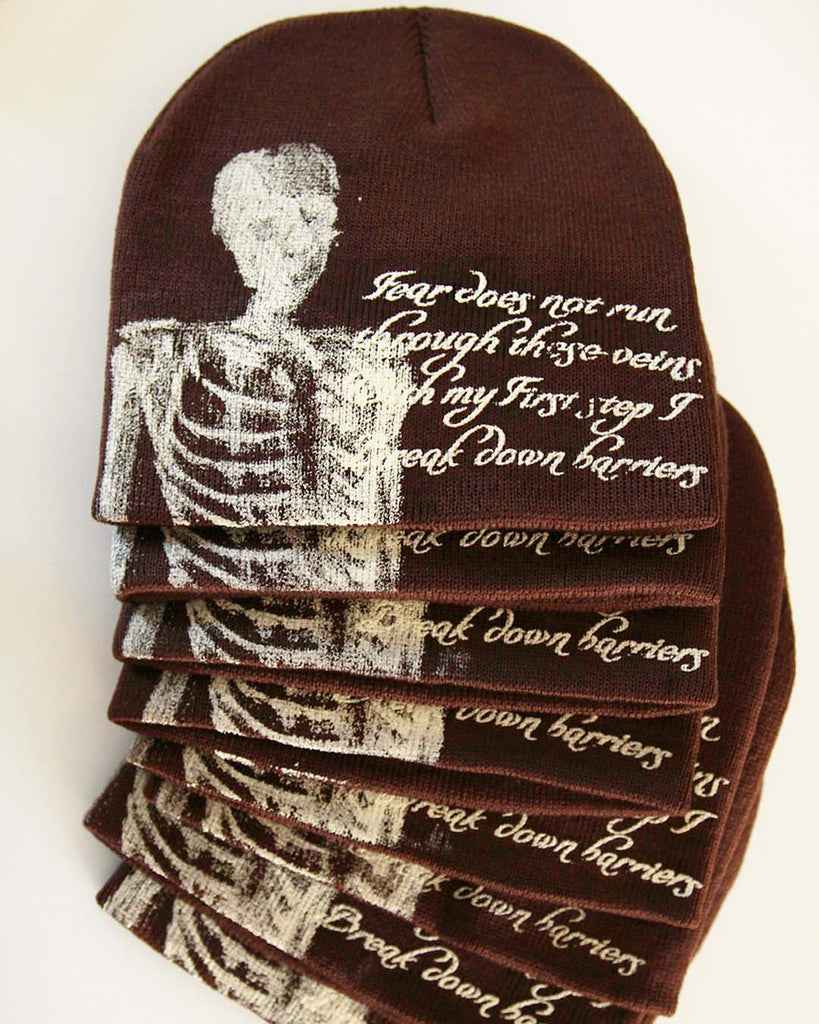 Fear does not run
through these veins.
With my First step I
Break down barriers
eak down barriers
Break down barriers
down barriers
n
ins
p I
reak down barriers
k down barriers
Break down ba